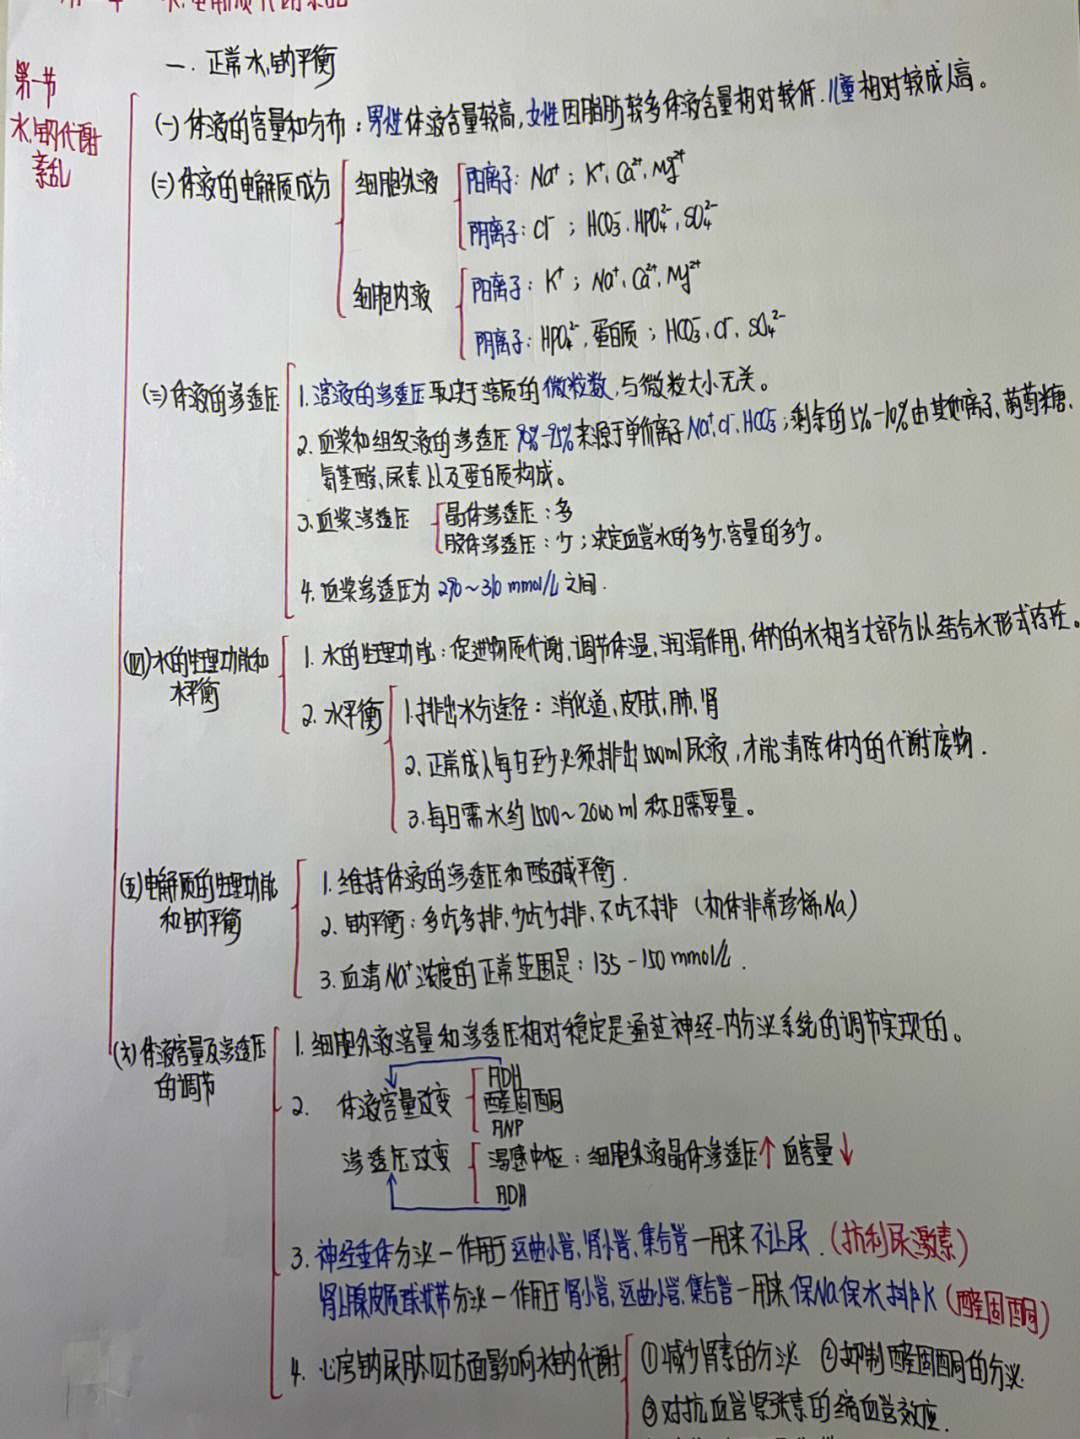 第一节
水、钠代谢
紊乱
一. 正常水、钠平衡
(一) 体液的容量和分布：男性体液含量较高，女性因脂肪较多体液含量相对较低. 儿童相对较成人高。
(二) 体液的电解质成分
细胞外液
阳离子：Na⁺；K⁺、Ca²⁺、Mg²⁺
阴离子：Cl⁻；HCO₃⁻、HPO₄²⁻、SO₄²⁻
细胞内液
阳离子：K⁺；Na⁺、Ca²⁺、Mg²⁺
阴离子：HPO₄²⁻、蛋白质；HCO₃⁻、Cl⁻、SO₄²⁻
(三) 体液的渗透压
1. 溶液的渗透压取决于溶质的微粒数，与微粒大小无关。
2. 血浆和组织液的渗透压90%-95%来源于单价离子Na⁺、Cl⁻、HCO₃⁻；剩余的5%-10%由其他离子、葡萄糖、
氨基酸、尿素以及蛋白质构成。
3. 血浆渗透压
晶体渗透压：多
胶体渗透压：少；决定血管水的多少、容量的多少。
4. 血浆渗透压为290~310 mmol/L之间.
(四) 水的生理功能和
水平衡
1. 水的生理功能：促进物质代谢、调节体温、润滑作用，体内的水相当大部分以结合水形式存在。
2. 水平衡
1. 排出水分途径：消化道、皮肤、肺、肾
2. 正常成人每日至少必须排出500ml尿液，才能清除体内的代谢废物.
3. 每日需水约1500~2000ml 称日需要量。
(五) 电解质的生理功能
和钠平衡
1. 维持体液的渗透压和酸碱平衡.
2. 钠平衡：多吃多排、少吃少排、不吃不排（机体非常珍稀Na）
3. 血清Na⁺浓度的正常范围是：135-150 mmol/L.
(六) 体液容量及渗透压
的调节
1. 细胞外液溶量和渗透压相对稳定是通过神经-内分泌系统的调节实现的。
2. 体液容量改变
ADH
醛固酮
ANP
渗透压改变
渴感中枢：细胞外液晶体渗透压↑ 血容量↓
ADH
3. 神经垂体分泌—作用于远曲小管、肾小管、集合管—用来不让尿.（抗利尿激素）
肾上腺皮质球状带分泌—作用于肾小管、远曲小管、集合管—用来保Na保水排K（醛固酮）
4. 心房钠尿肽四方面影响水钠代谢
①减少肾素的分泌 ②抑制醛固酮的分泌
③对抗血管紧张素的缩血管效应